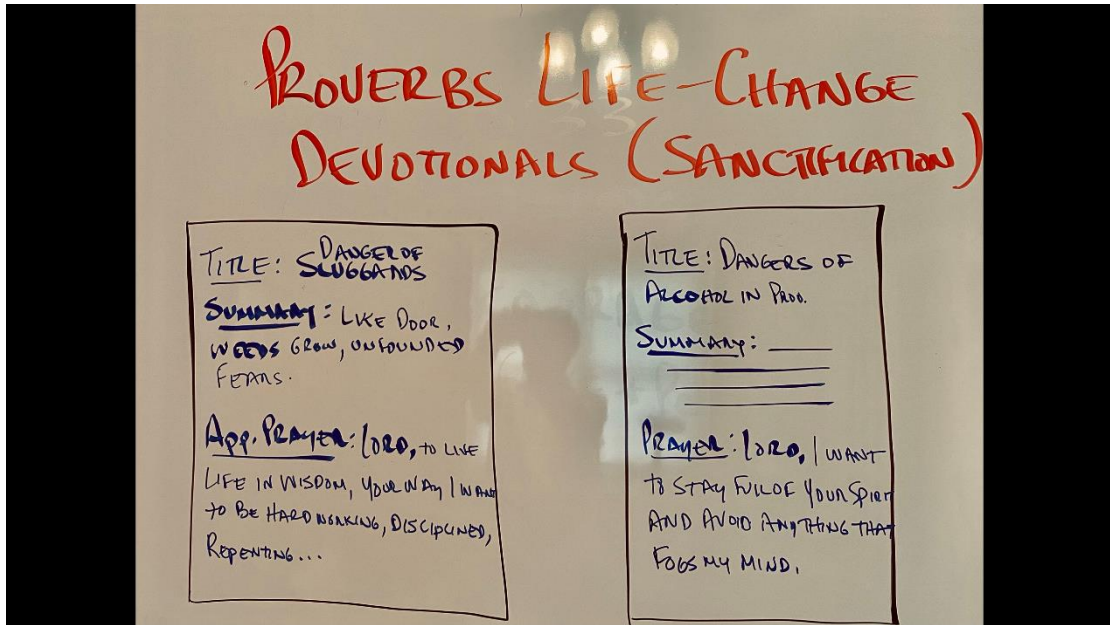 PROVERBS LIFE-CHANGE
DEVOTIONALS (SANCTIFICATION)
TITLE: DANGER OF
SLUGGANDS
SUMMARY: LIKE DOOR,
WEEDS GROW, UNFOUNDED
FEARS.
APP. PRAYER: LORD, TO LIVE
LIFE IN WISDOM, YOUR WAY I WANT
TO BE HARDWORKING, DISCIPLINED,
REPENTING...
TITLE: DANGERS OF
ALCOHOL IN PROV.
SUMMARY:
PRAYER: LORD, I WANT
TO STAY FULL OF YOUR SPIRIT
AND AVOID ANYTHING THAT
FOGS MY MIND.